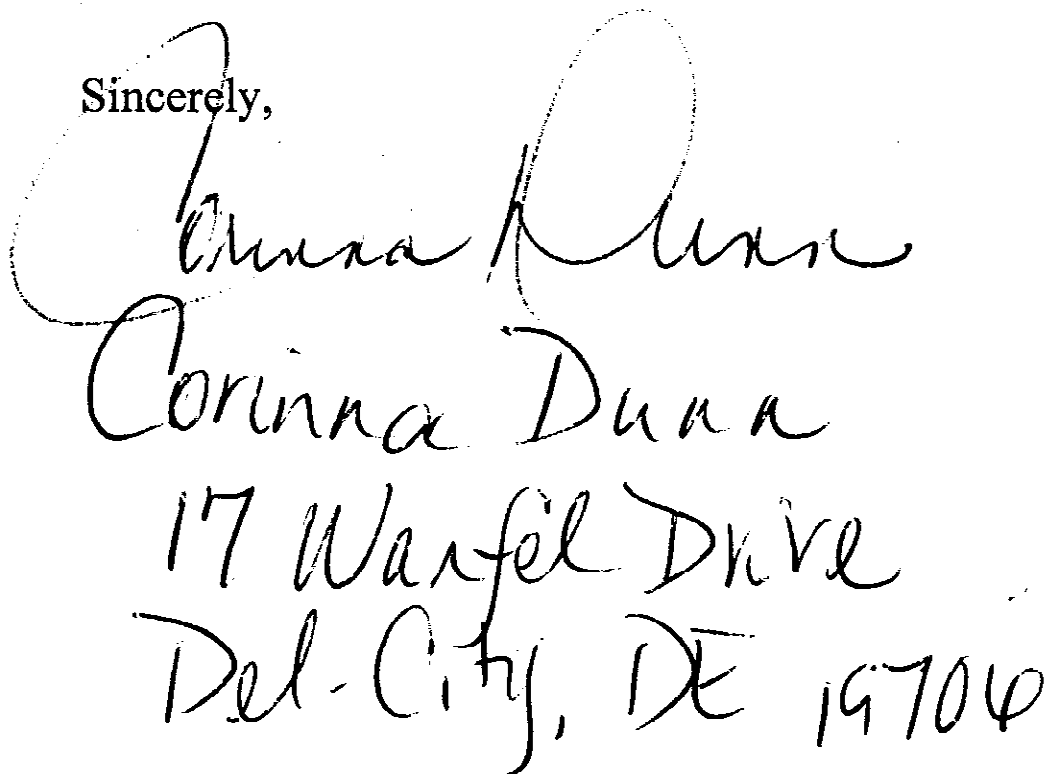 Sincerely,
Corinna Dunn
Corinna Dunn
17 Warfel Drive
Del. City, DE 19706